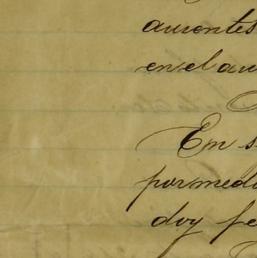 ausentes
en el au
En s
por medi
doy fe